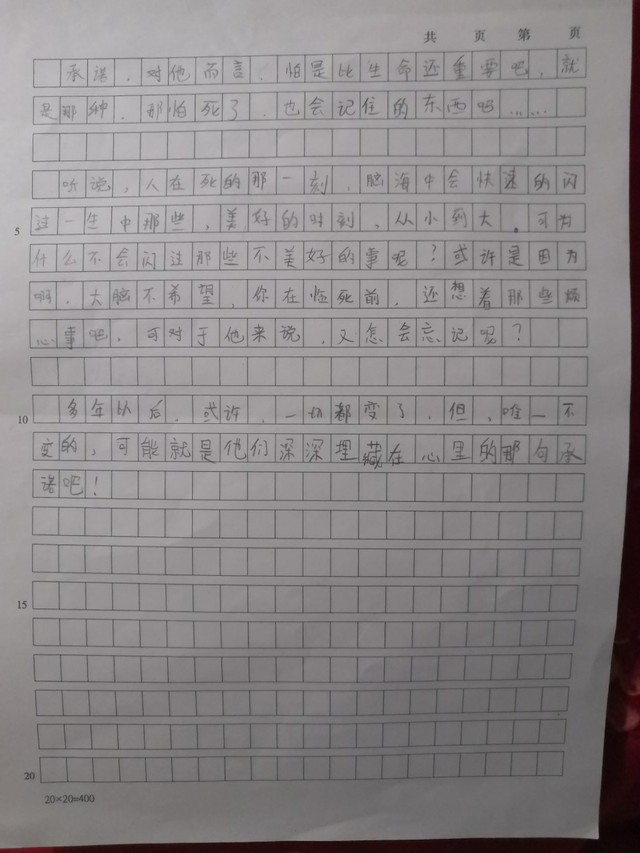 共 页 第 页
承诺，对他而言，怕是比生命还重要吧，就
是那种，那怕死了，也会记住的东西吧……
听说，人在死的那一刻，脑海中会快速的闪
5 过一生中那些，美好的时刻，从小到大。可为
什么不会闪过那些不美好的事呢？或许是因为
啊，大脑不希望，你在临死前，还想着那些烦
心事吧，可对于他来说，又怎会忘记呢？
10 多年以后，或许，一切都变了，但，唯一不
变的，可能就是他们深深埋藏在心里的那句承
诺吧！
15
20
20×20=400